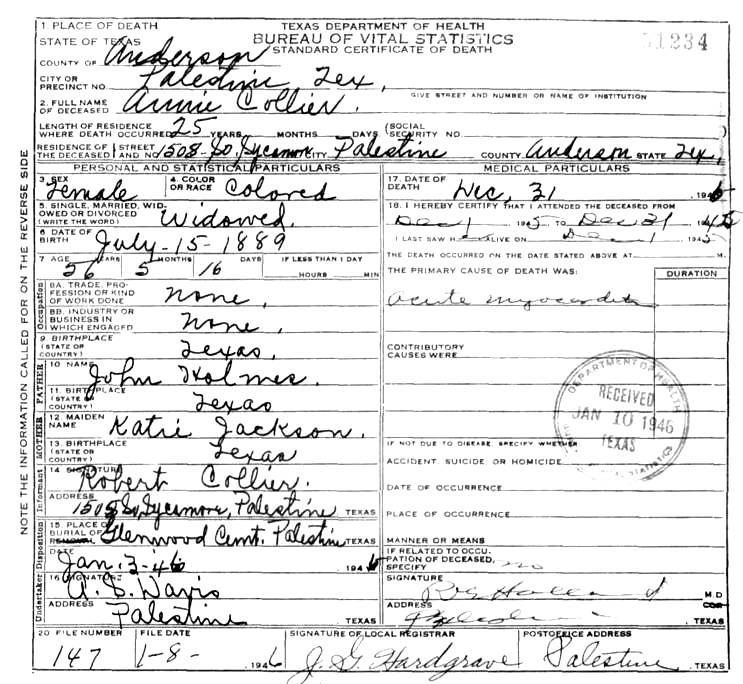 1 PLACE OF DEATH
STATE OF TEXAS
TEXAS DEPARTMENT OF HEALTH
BUREAU OF VITAL STATISTICS
STANDARD CERTIFICATE OF DEATH
51234
COUNTY OF Anderson
CITY OR PRECINCT NO. Palestine Tex,
GIVE STREET AND NUMBER OR NAME OF INSTITUTION
2. FULL NAME OF DECEASED Annie Collier.
LENGTH OF RESIDENCE WHERE DEATH OCCURRED 25 YEARS MONTHS DAYS (SOCIAL SECURITY NO.
RESIDENCE OF THE DECEASED STREET AND NO. 1508-So, Sycamore CITY Palestine COUNTY Anderson STATE Tex,
PERSONAL AND STATISTICAL PARTICULARS
3. SEX Female
4. COLOR OR RACE Colored
5. SINGLE, MARRIED, WIDOWED OR DIVORCED (WRITE THE WORD) Widowed.
6 DATE OF BIRTH July-15-1889
7 AGE 56 YEARS 5 MONTHS 16 DAYS IF LESS THAN 1 DAY HOURS MIN
Occupation
8A. TRADE, PROFESSION OR KIND OF WORK DONE none,
8B. INDUSTRY OR BUSINESS IN WHICH ENGAGED None,
9 BIRTHPLACE (STATE OR COUNTRY) Texas,
FATHER
10 NAME John Holmes.
11. BIRTHPLACE (STATE OR COUNTRY) Texas
MOTHER
12. MAIDEN NAME Katie Jackson.
13. BIRTHPLACE (STATE OR COUNTRY) Texas
Informant
14 SIGNATURE Robert Collier.
ADDRESS 1508 So, Sycamore, Palestine TEXAS
Disposition
15 PLACE OF BURIAL OR REMOVAL Glenwood Cemt. Palestine TEXAS
DATE Jan. 3-46 1946
Undertaker
16 SIGNATURE A. S. Davis
ADDRESS Palestine TEXAS
MEDICAL PARTICULARS
17. DATE OF DEATH Dec, 31 194
18. I HEREBY CERTIFY THAT I ATTENDED THE DECEASED FROM
Dec 1 1945 TO Dec 31 1945
I LAST SAW H ALIVE ON Dec 1 1945
THE DEATH OCCURRED ON THE DATE STATED ABOVE AT M.
THE PRIMARY CAUSE OF DEATH WAS: DURATION
acute myocarditis
CONTRIBUTORY CAUSES WERE
DEPARTMENT OF HEALTH
RECEIVED
JAN 10 1946
TEXAS
VITAL STATISTICS
IF NOT DUE TO DISEASE, SPECIFY WHETHER
ACCIDENT, SUICIDE OR HOMICIDE
DATE OF OCCURRENCE
PLACE OF OCCURRENCE
MANNER OR MEANS
IF RELATED TO OCCUPATION OF DECEASED, SPECIFY no
SIGNATURE M.D
ADDRESS TEXAS
20 FILE NUMBER 147
FILE DATE 1-8- 1946
SIGNATURE OF LOCAL REGISTRAR J. G. Hardgrave
POSTOFFICE ADDRESS Palestine TEXAS
NOTE THE INFORMATION CALLED FOR ON THE REVERSE SIDE